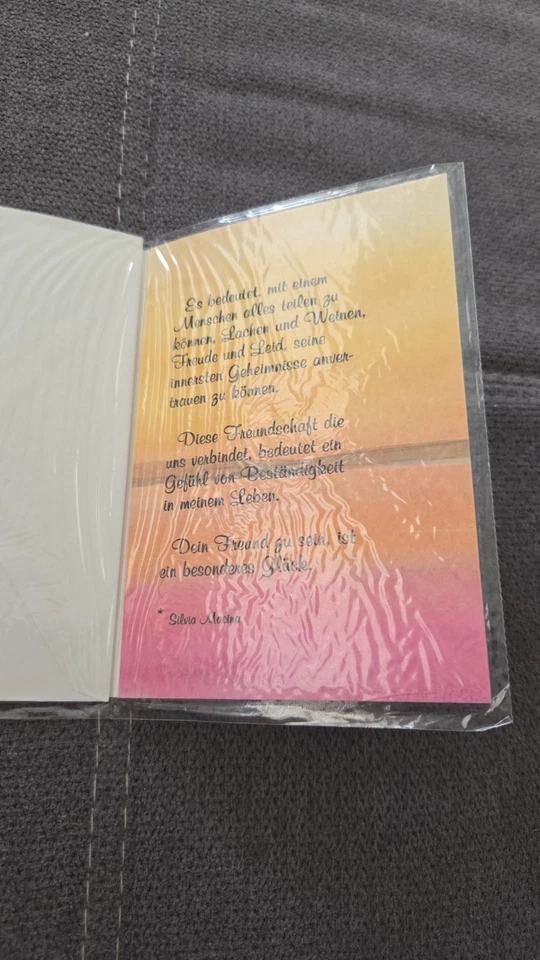 Es bedeutet, mit einem
Menschen alles teilen zu
können, Lachen und Weinen,
Freude und Leid, seine
innersten Geheimnisse anver-
trauen zu können.
Diese Freundschaft die
uns verbindet, bedeutet ein
Gefühl von Beständigkeit
in meinem Leben.
Dein Freund zu sein, ist
ein besonderes Glück.
* Silvia Macina